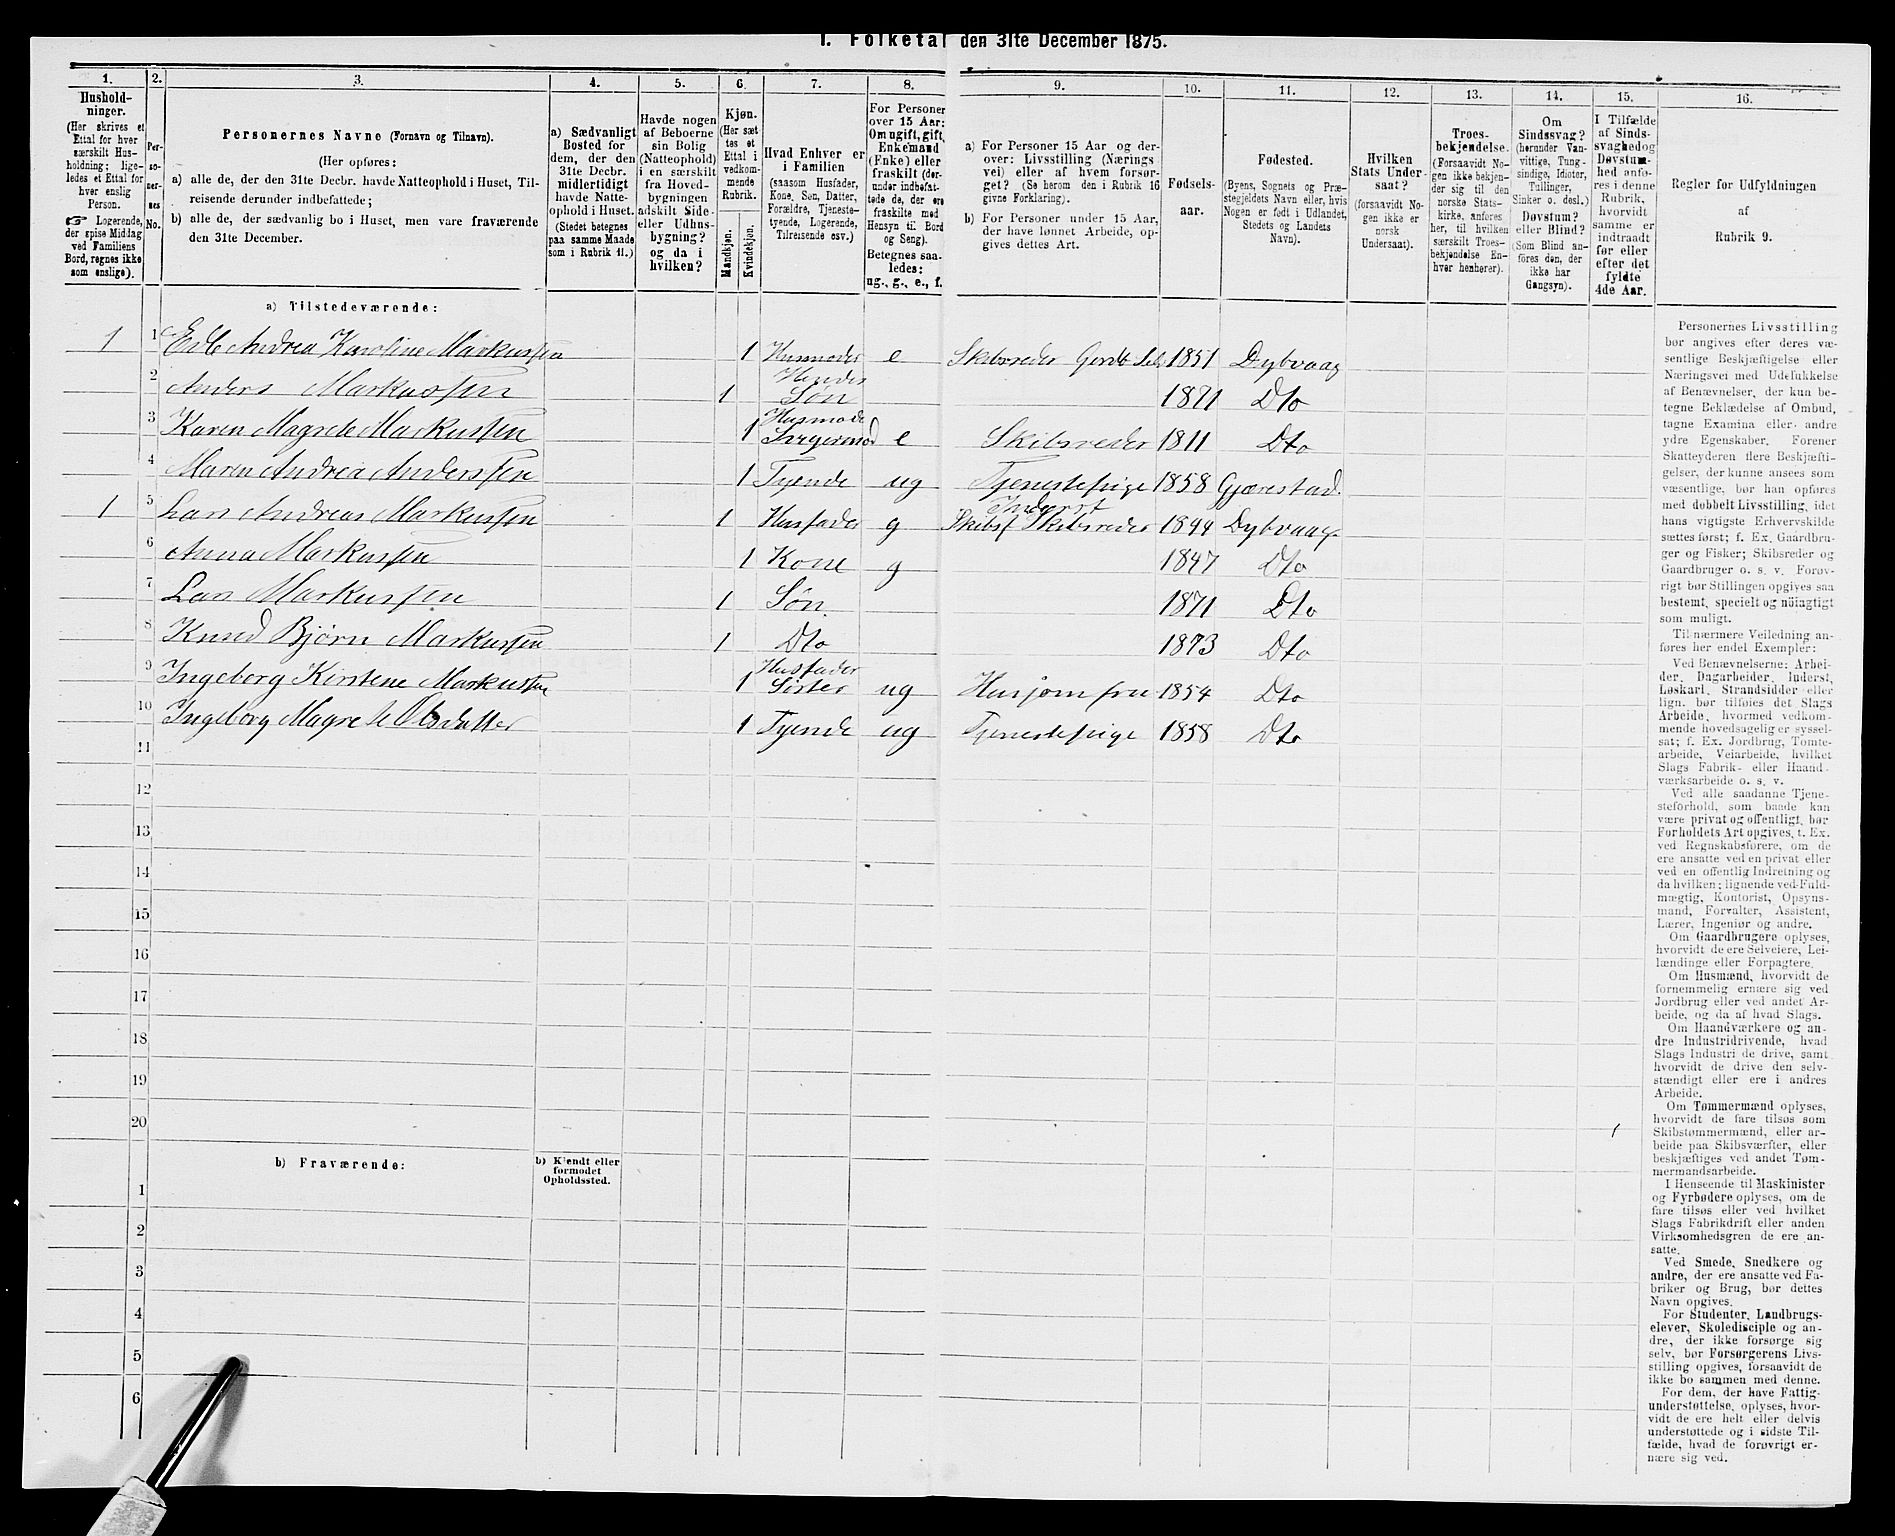 1. Folketal den 31te December 1875.
1.
Hushold-
ninger.
(Her skrives et
Ettal for hver
særskilt Hus-
holdning; lige-
ledes et Ettal for
hver enslig
Person.
☞ Logerende,
der spise Middag
ved Familiens
Bord, regnes ikke
som enslige).
2.
Per-
so-
ner-
nes
No.
3.
Personernes Navne (Fornavn og Tilnavn).
(Her opføres:
a) alle de, der den 31te Decbr. havde Natteophold i Huset, Til-
reisende derunder indbefattede;
b) alle de, der sædvanlig bo i Huset, men vare fraværende
den 31te December.
4.
a) Sædvanligt
Bosted for
dem, der den
31te Decbr.
midlertidigt
havde Natte-
ophold i Huset.
(Stedet betegnes
paa samme Maade
som i Rubrik 11.)
5.
Havde nogen
af Beboerne
sin Bolig
(Natteophold)
i en særskilt
fra Hoved-
bygningen
adskilt Side-
eller Udhus-
bygning?
og da i
hvilken?
6.
Kjøn.
(Her sæt-
tes et
Ettal i
vedkom-
mende
Rubrik.
Mandkjøn.
Kvindekjøn.
7.
Hvad Enhver er
i Familien
(saasom Husfader,
Kone, Søn, Datter,
Forældre, Tjeneste-
tyende, Logerende,
Tilreisende osv.)
8.
For Personer
over 15 Aar:
Om ugift, gift,
Enkemand
(Enke) eller
fraskilt (der-
under indbefat-
tede de, der ere
fraskilte med
Hensyn til Bord
og Seng).
Betegnes saa-
ledes:
ug., g., e., f.
9.
a) For Personer 15 Aar og der-
over: Livsstilling (Nærings
vei) eller af hvem forsør-
get? (Se herom den i Rubrik 16
givne Forklaring).
b) For Personer under 15 Aar,
der have lønnet Arbeide, op-
gives dettes Art.
10.
Fødsels-
aar.
11.
Fødested.
(Byens, Sognets og Præ-
stegjeldets Navn eller, hvis
Nogen er født i Udlandet,
Stedets og Landets
Navn).
12.
Hvilken
Stats Under-
saat?
(forsaavidt No-
gen ikke er
norsk
Undersaat).
13.
Troes-
bekjendelse.
(Forsaavidt No-
gen ikke bekjen-
der sig til den
norske Stats-
kirke, anføres
her, til hvilken
særskilt Troes-
bekjendelse En-
hver henhører).
14.
Om
Sindssvag?
(herunder Van-
vittige, Tung-
sindige, Idioter,
Tullinger,
Sinker o. desl.)
Døvstum?
eller Blind?
(Som Blind an-
føres den, der
ikke har
Gangsyn).
15.
I Tilfælde
af Sinds-
svaghed og
Døvstum-
hed anfø-
res i denne
Rubrik,
hvorvidt
samme er
indtraadt
før eller
efter det
fyldte
4de Aar.
16.
Regler for Udfyldningen
af
Rubrik 9.
a) Tilstedeværende:
1 1 Edle Andrea Karoline Markussen 1 Husmoder e Skibsreder 1851 Dybvaag
2 Anders Markussen 1 Hendes Søn 1871 Dto
3 Karen Magrete Markussen 1 e Skibsreder 1811 Dto
4 Maren Andrea Anderssen 1 Tyende ug Tjenestepige 1858 Gjærestad
1 5 Lars Andreas Markussen 1 Husfader g Inderst Skibsf Skibsreder 1844 Dybvaag
6 Anna Markussen 1 Kone g 1847 Dto
7 Lars Markussen 1 Søn 1871 Dto
8 Knud Bjørn Markussen 1 Dto 1873 Dto
9 Ingeborg Kirstene Markussen 1 Husfader Sister ug Husjomfru 1854 Dto
10 Ingeborg Magrete Olsdatter 1 Tyende ug Tjenestepige 1858 Dto
11
12
13
14
15
16
17
18
19
20
b) Fraværende:
b) Kjendt eller
formodet
Opholdssted.
1
2
3
4
5
6
Personernes Livsstilling
bør angives efter deres væ-
sentlige Beskjæftigelse eller
Næringsvei med Udelukkelse
af Benævnelser, der kun be-
tegne Beklædelse af Ombud,
tagne Examina eller andre
ydre Egenskaber. Forener
Skatteyderen flere Beskjæfti-
gelser, der kunne ansees som
væsentlige, bør han opføres
med dobbelt Livsstilling, idet
hans vigtigste Erhvervskilde
sættes først; f. Ex. Gaardbru-
ger og Fisker; Skibsreder og
Gaardbruger o. s. v. Forøv-
rigt bør Stillingen opgives saa
bestemt, specielt og nøiagtigt
som muligt.
Til nærmere Veiledning an-
føres her endel Exempler:
Ved Benævnelserne: Arbei-
der, Dagarbeider, Inderst,
Løskarl, Strandsidder eller
lign. bør tilføies det Slags
Arbeide, hvormed vedkom-
mende hovedsagelig er syssel-
sat; f. Ex. Jordbrug, Tomte-
arbeide, Veiarbeide, hvilket
Slags Fabrik- eller Haand-
værksarbeide o. s. v.
Ved alle saadanne Tjene-
steforhold, som baade kan
være privat og offentligt, bør
Forholdets Art opgives, t. Ex.
ved Regnskabsførere, om de
ere ansatte ved en privat eller
ved en offentlig Indretning og
da hvilken; lignende ved Fuld-
mægtig, Kontorist, Opsyns-
mand, Forvalter, Assistent,
Lærer, Ingeniør og andre.
Om Gaardbrugere oplyses,
hvorvidt de ere Selveiere, Lei-
lændinge eller Forpagtere.
Om Husmænd, hvorvidt de
fornemmelig ernære sig ved
Jordbrug eller ved andet Ar-
beide, og da af hvad Slags.
Om Haandværkere og an-
dre Industridrivende, hvad
Slags Industri de drive, samt
hvorvidt de drive den selv-
stændigt eller ere i andres
Arbeide.
Om Tømmermænd oplyses,
hvorvidt de fare tilsøs som
Skibstømmermænd, eller ar-
beide paa Skibsværfter, eller
beskjæftiges ved andet Tøm-
mermandsarbeide.
I Henseende til Maskinister
og Fyrbødere oplyses, om de
fare tilsøs eller ved hvilket
Slags Fabrikdrift eller anden
Virksomhedsgren de ere an-
satte.
Ved Smede, Snedkere og
andre, der ere ansatte ved Fa-
briker og Brug, bør dettes
Navn opgives.
For Studenter, Landbrugs-
elever, Skoledisciple og an-
dre, der ikke forsørge sig
selv, bør Forsørgerens Livs-
stilling opgives, forsaavidt de
ikke bo sammen med denne.
For dem, der have Fattig-
understøttelse, oplyses, hvor-
vidt de ere helt eller delvis
understøttede og i sidste Til-
fælde, hvad de forøvrigt er-
nære sig ved.